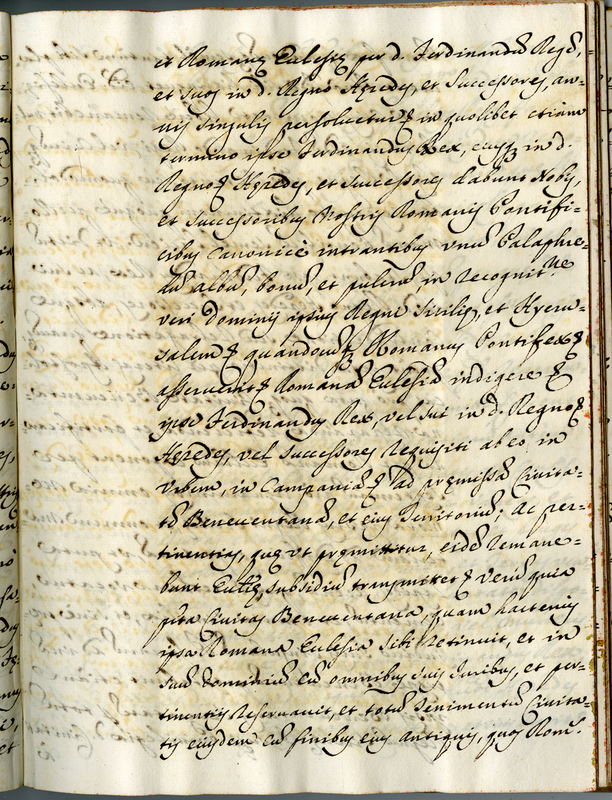 et Romanę Eclesię per d. Ferdinandũ Regẽ,
et suos in d. Regno Hęredes, et Successores an-
nis singulis persoluetur in quolibet etiam
termino ipse Ferdinandus Rex, eiusq; in d.
Regno Hęredes, et successores dabunt Nobis,
et successoribus Nostris Romanis Pontifi-
cibus canonicè intrantibus vnũ Palaphre-
dũ albũ, bonũ, et pulcrũ in recognit.ne
veri Dominij ipsius Regni Sicilię, et Hyeru-
salem quandocũq; Romanus Pontifex
asseruerit Romanã Eclesiã indigere
ipse Ferdinandus Rex, vel sui in d. Regno
Hęredes, vel successores requisiti ab eo in
Vrbem, in Campaniã ad pręmissã Ciuita-
tẽ Beneuentanã, et eius Territoriũ; ac per-
tinentias, quę vt pręmittitur, eidẽ remane-
bunt Eccłię subsidiũ transmittet verũ quia
p̃ta Ciuitas Beneuentana, quam hactenus
ipsa Romana Eclesia sibi retinuit, et in
suũ Dominiũ cũ omnibus suis Iuribus, et per-
tinentijs reseruauit, et totũ Tenimentũ Ciuita-
tis eiusdem cũ finibus eius antiquis, quos Rom.